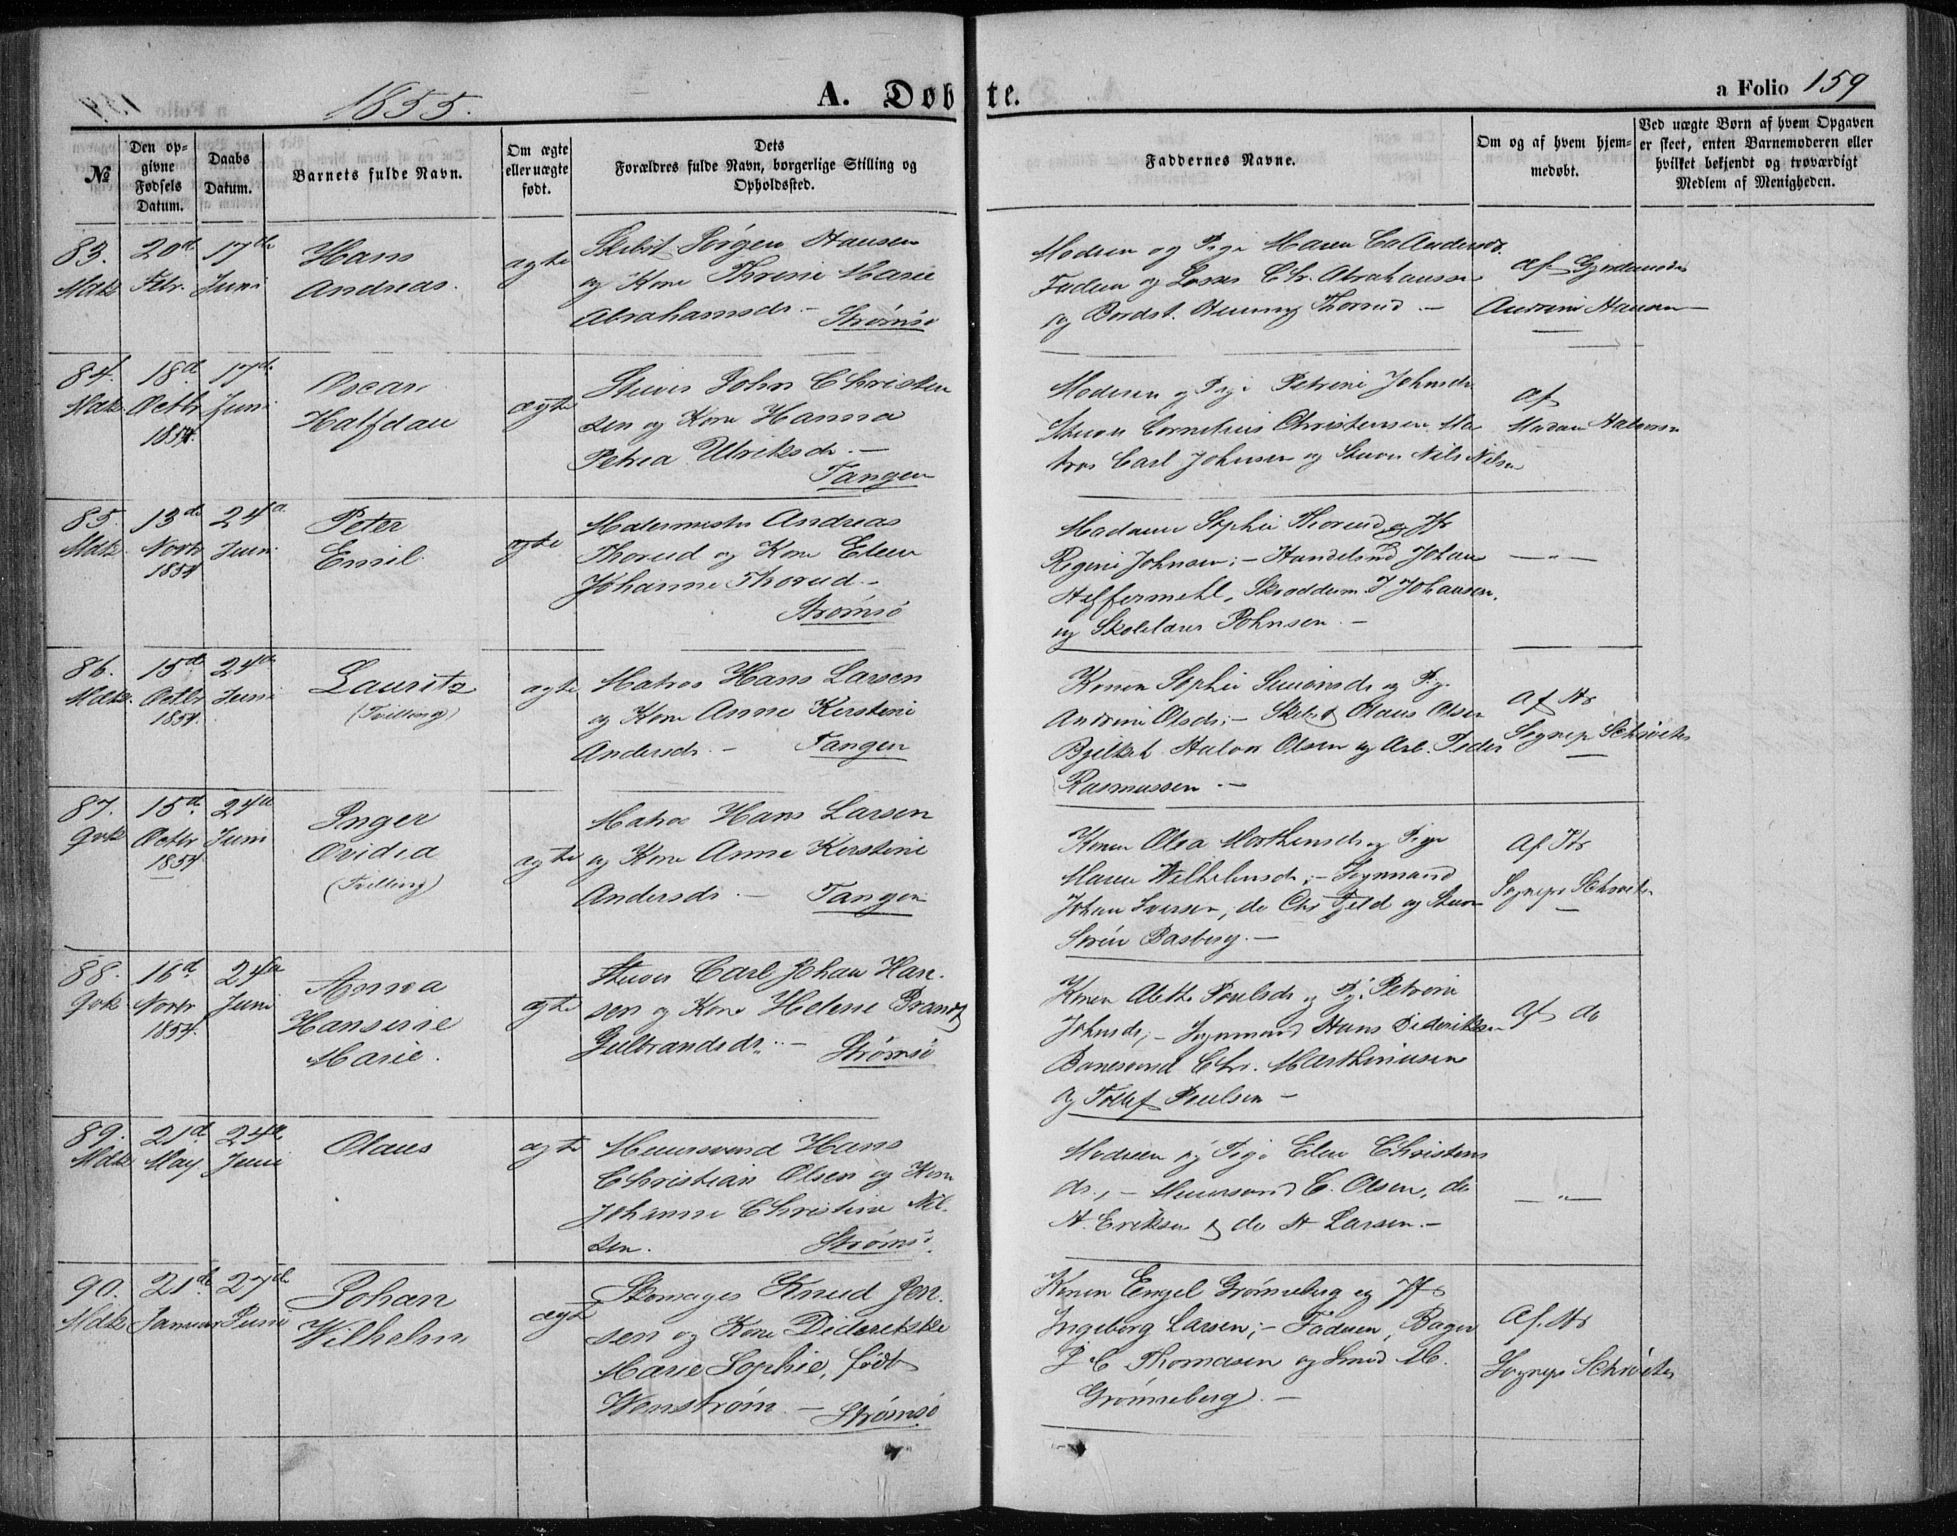 1855.
A. Døbte.
a Folio 159
№
Den op-
givne
Fødsels
Datum.
Daabs
Datum.
Barnets fulde Navn.
Om ægte
eller uægte
født.
Dets
Forældres fulde Navn, borgerlige Stilling og
Opholdssted.
Faddernes Navne.
Om og af hvem hjem-
medøbt.
Ved uægte Børn af hvem Opgaven
er skeet, enten Barnemoderen eller
hvilket bekjendt og troværdigt
Medlem af Menigheden.
83. 20d 17de
Mdk Febr. Juni
Hans
Andreas.
ægte
Skibst Jørgen Hansen
og Kone Thrine Marie
Abrahamsdr. –
Strømsø
Moderen og Pige Maren Andersdr.
Faderen og Losses Chr. Abrahamsen
og Bordst. Henning Thorud –
af Gjordemoder
Andrine Hansen
84. 18d 17de
Mdk Octbr Juni
1854.
Oscar
Halfdan
ægte
Stuer John Christen
sen og Kone Hanna
Petrea Ulriksdr. –
Tangen
Moderen og Pige Petrine Johnsdr
Stuer Cornelius Christensen Ma
tros Carl Johnsen og Stuer Nils Nilsen
af
Madam Halvorsen
85. 13de 24d
Mdk Novbr Juni
1854
Peter
Emil.
ægte
Malermester Andreas
Thorud og Kone Eleen
Johanne Thorud –
Strømsø
Madame Sophie Thorud og Jfr
Regine Johnsen; – Handelsmd Johan
Halfermehl, Skræddem. J Johansen.
og Skolelærer Johnsen –
– " –
86. 15d 24d
Mdk. Octbr Juni
1854.
Lauritz
(Tvilling)
ægte
Matros Hans Larsen
og Kone Anne Kerstine
Andersdr. –
Tangen
Konen Sophie Simonsdr og Pig.
Andrine Olsdr; – Skibst Olaus Olsen
Bjelkeh. Halvor Olsen og Arb. Peder
Rasmussen. –
af Hr
Sognep Schrøeter
87. 15d 24d
Qvk Octbr Juni
1854.
Inger
Ovidia
(Tvilling)
ægte
Matros Hans Larsen
og Kone Anne Kerstine
Andersdr. –
Tangen
Konen Olea Morthensdr og Pige
Maren Wilhelmsdr; – Sognmand
Johan Iversen, do Chr Fjeld og Stuer
Sørèn Basberg. –
af Hr
Sognep Schrøeter
88. 16d 24d
Qvk Novbr Juni
1854.
Anna
Hansine
Marie.
ægte
Stuer Carl Johan Han-
sen og Kone Helene Brandt
Gulbrandsdr. –
Strømsø
Konen Alette Poulsdr og Pig. Petrine
Johnsdr; – Sognmand Hans Dideriksen
Banesvend Chr. Marthinusen
og Tollef Poulsen –
af do
89. 21d 24d
Mdk. May Juni
Olaus
ægte
Muursvend Hans
Christian Olsen og Kone
Johanne Christine Nil-
sen.
Strømsø.
Moderen og Pige Elen Christens
dr., – Muursvend C. Olsen, do
A. Eriksen & do A Larsen. –
– " –
90. 21de 27de
Mdk Januar Juni
Johan
Wilhelm
ægte
Skomager Knud Jen-
sen og Kone Diderikke
Marie Sophie, født
Wenstrøm –
Strømsø
Konen Engel Grønneberg og Jfr
Ingeborg Larsen; – Faderen, Bager
J C Thomasen og Smed M.
Grønneberg. –
af Hr
Sognep Schrøeter